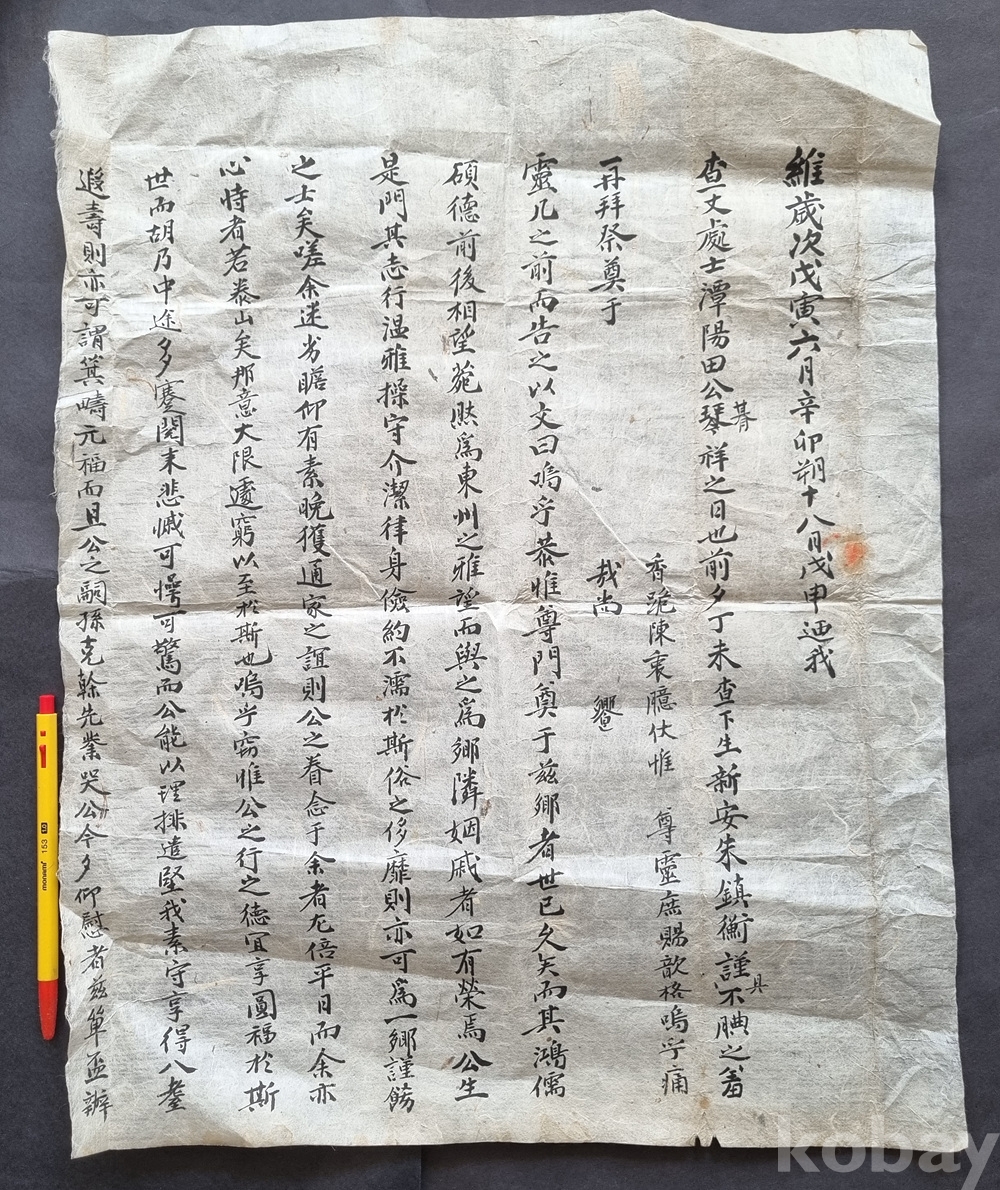 維歲次戊寅六月辛卯朔十八日戊申迺我
查丈處士潭陽田公琴朞祥之日也前夕丁未查下生新安朱鎮衡謹具不腆之羞
再拜祭奠于
靈几之前而告之以文曰嗚乎恭惟尊門奠于玆鄉者世已久矣而其鴻儒
碩德前後相望菀然爲東州之雅望而與之爲鄉隣姻戚者如有榮焉公生
是門其志行温雅操守介潔律身儉約不濡於斯俗之侈靡則亦可爲一鄉謹飭
之士矣嗟余迷劣瞻仰有素晚獲通家之誼則公之眷念于余者尤倍平日而余亦
心恃者若泰山矣那意大限遽窮以至於斯也嗚乎窃惟公之行之德宜享圓福於斯
世而胡乃中途多蹇閱来悲慽可愕可驚而公能以理排遣堅我素守享得八耋
遐壽則亦可謂箕疇元福而且公之嗣孫克幹先業哭公今夕仰慰者玆單盃辦
香跪陳衷臆伏惟 尊靈庶賜歆格嗚乎痛
哉尚 饗
kobay